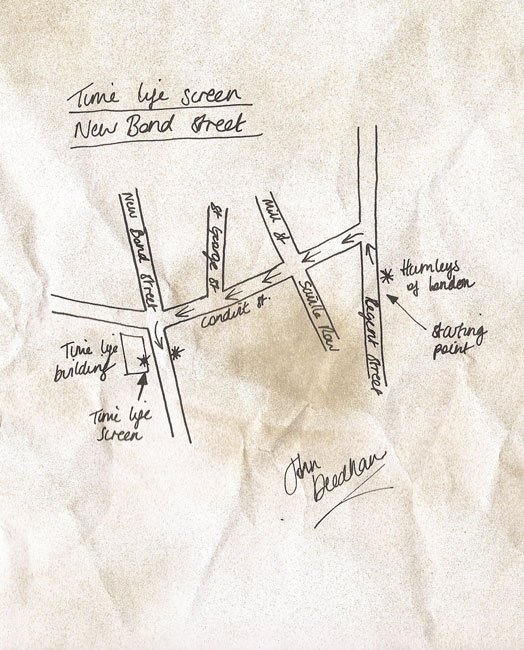 Time life screen
New Bond Street
New Bond Street
St George St
Mill St
Conduit St.
Saville Row
Regent Street
Hamleys
of London
Starting
point
Time life
building
Time life
screen
John